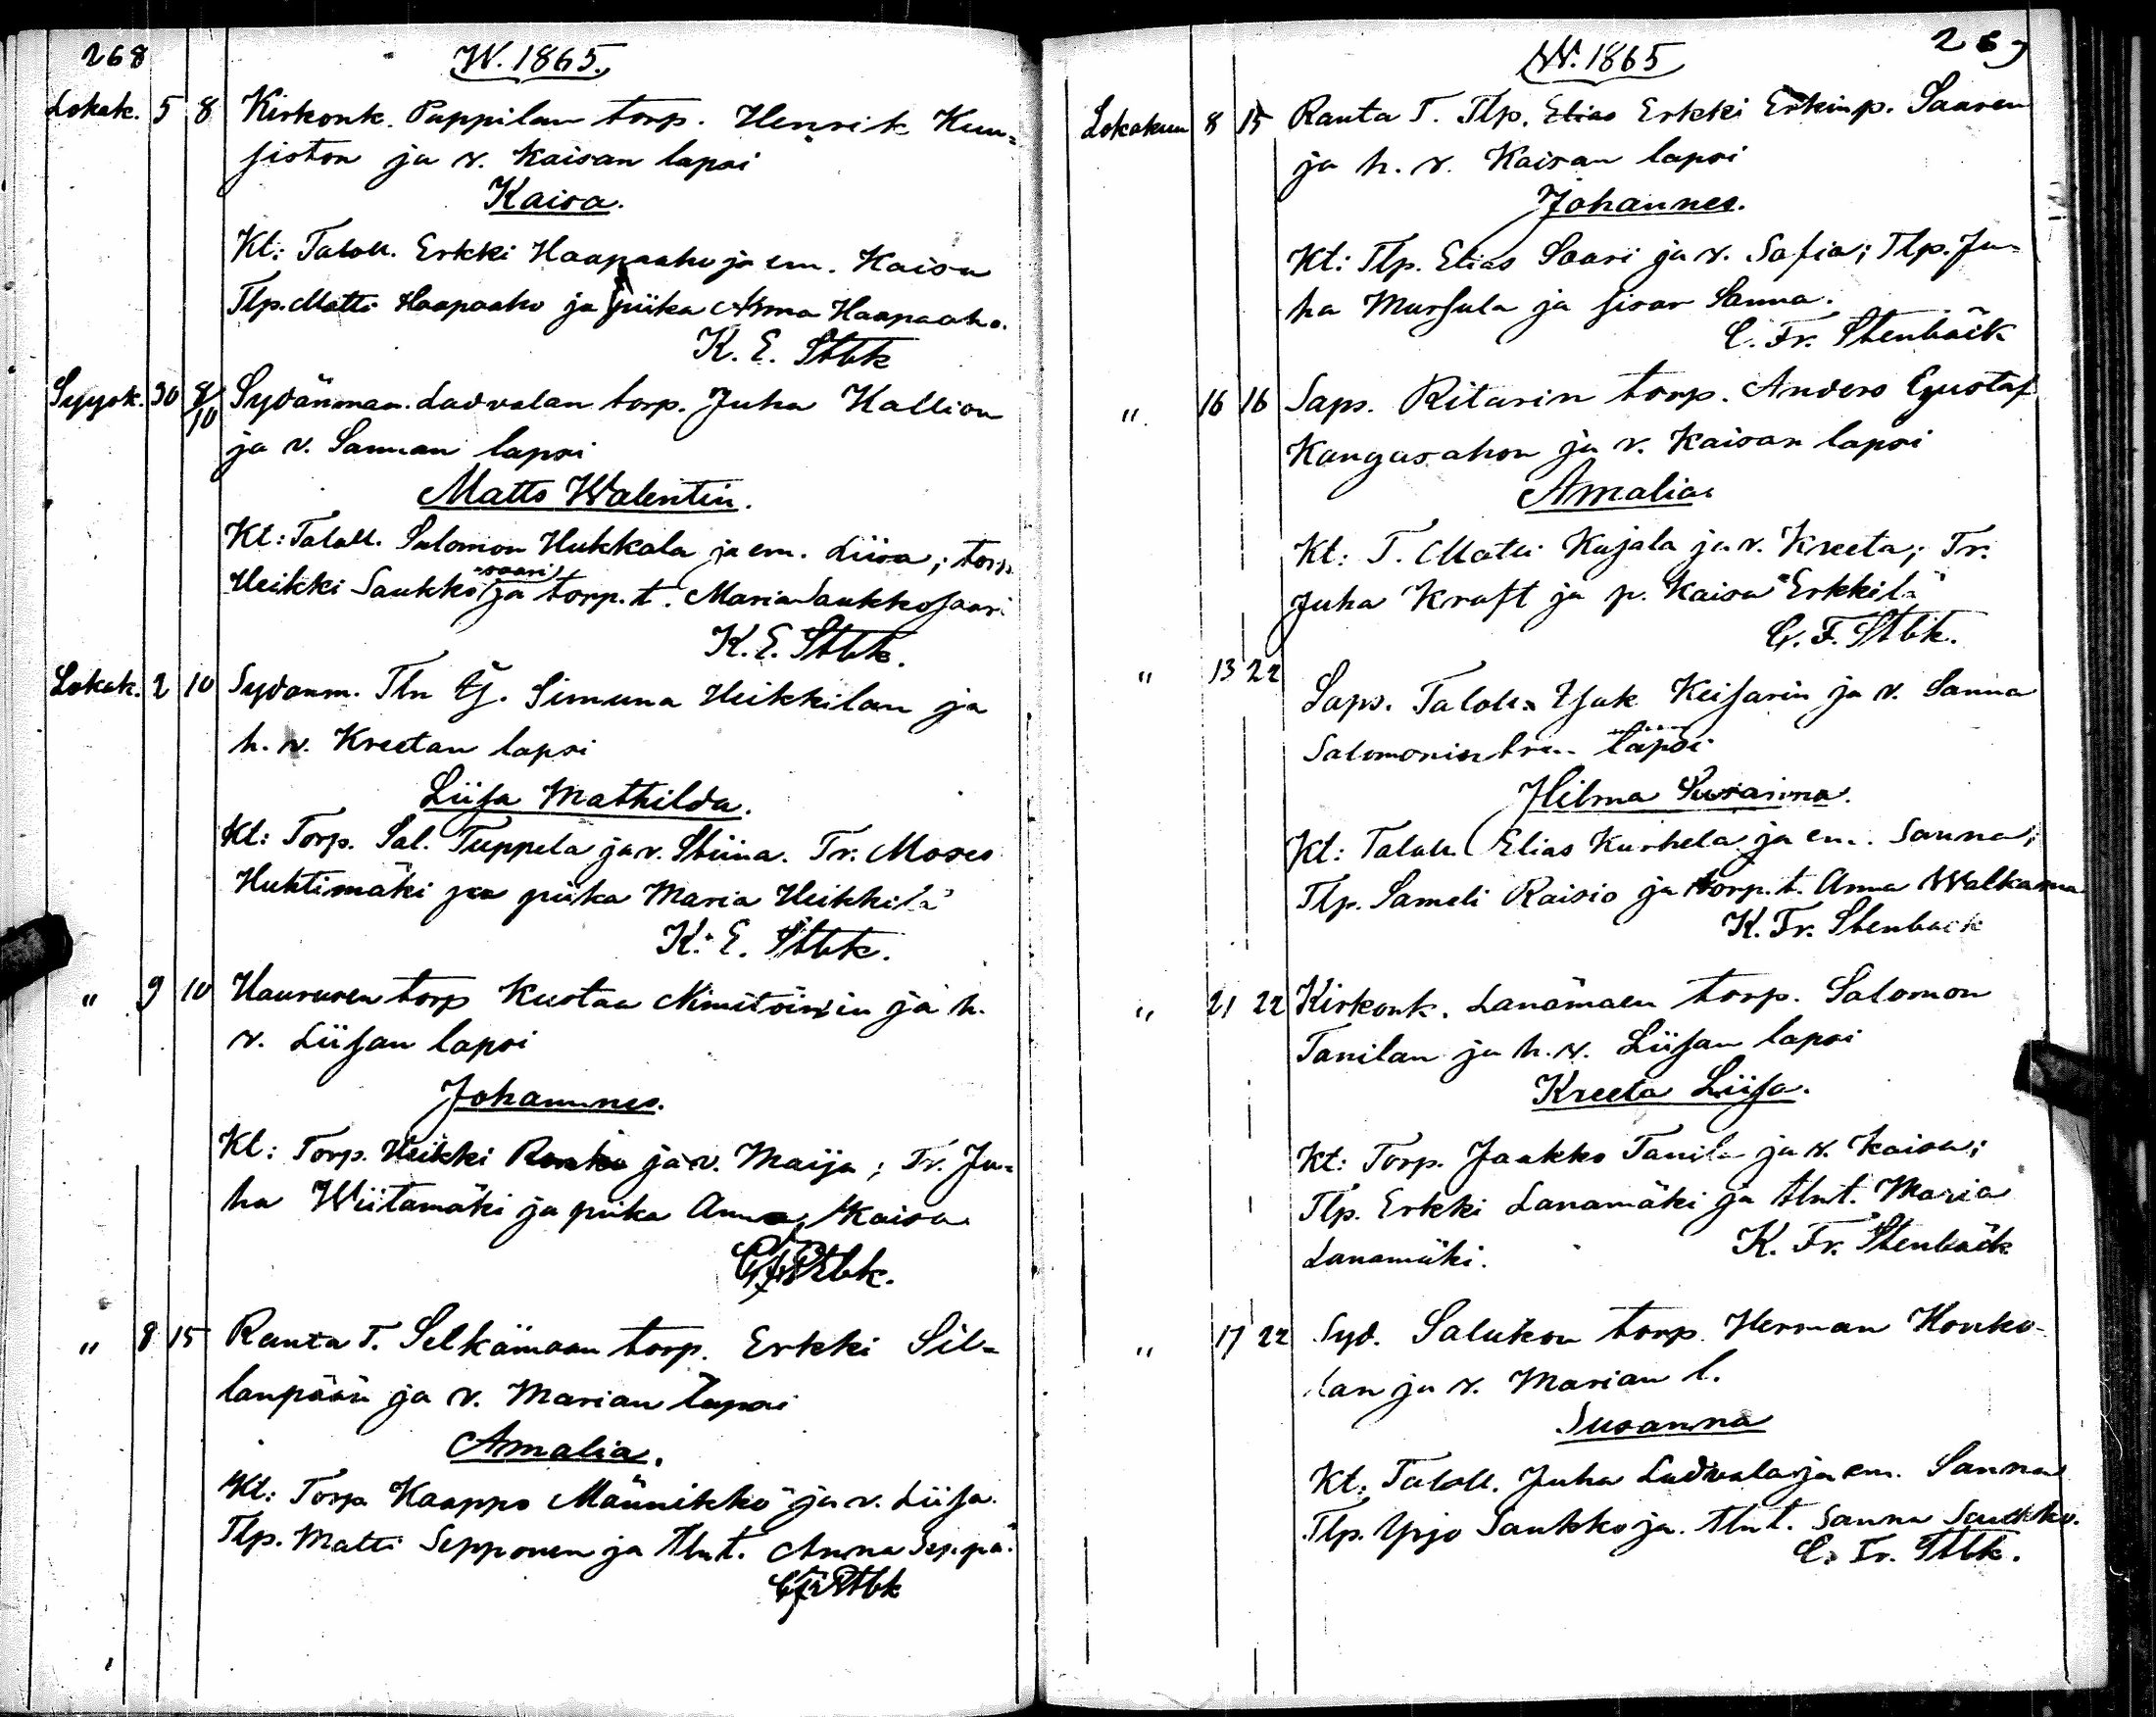 268
W. 1865.
Lokak. 5 8 Kirkonk. Pappilan torp. Henrik Kun-
siston ja v. Kaisan lapsi
Kaisa.
Kt: Taloll. Erkki Haapaaho ja em. Kaisa
Tlp. Matti Haapaaho ja piika Anna Haapaaho.
K. E. Stbk
Syysk. 30 8/10 Sydänmaa. Ladvalan torp. Juha Kallion
ja v. Sannan lapsi
Matts Walentin.
Kt: Taloll. Salomon Hukkala ja em. Liisa; torp.
Heikki Saukko-saari ja torp. t. Maria Saukkosaari
K. E. Stbk.
Lokak. 2 10 Sydänm. Tln Simuna Heikkilän ja
h. v. Kreetan lapsi
Liisa Mathilda.
Kt: Torp. Sal. Tuppela ja v. Stiina. Tr. Moses
Huhtimäki ja piika Maria Heikkilä
K. E. Stbk.
" 9 10 Haurusen torp Kustaa Nimitöinin ja h.
v. Liisan lapsi
Johannes.
Kt: Torp. Heikki ja v. Maija; Tr. Ju-
ha Wiitamäki ja piika Anna Kaisa
Stbk.
" 8 15 Ranta T. Selkämaan torp. Erkki Sil-
lanpään ja v. Marian lapsi
Amalia.
Kt: Torp Kaappo Männikkö ja v. Liisa.
Tlp. Matti Sepponen ja tlnt. Anna Seppä.
Stbk
269
W. 1865
Lokakuun 8 15 Ranta T. Tlp. Elias Erkki Erkinp. Saaren
ja h. v. Kaisan lapsi
Johannes.
Kt: Tlp. Elias Saari ja v. Safia; Tlp. Ju-
ha Mursula ja sisar Sanna.
C. Fr. Stenbäck
" 16 16 Saps. Ritarin torp. Anders Gustaf
Kangasahon ja v. Kaisan lapsi
Amalia
Kt: T. Matti Kujala ja v. Kreeta; Tr.
Juha Kraft ja p. Kaisa Erkkilä
C. F. Stbk.
" 13 22 Saps. Taloll. Isak Keisarin ja v. Sanna
Salomonin lapsi
Hilma Susanna.
Kt: Taloll. Elias Kurhela ja em. Sanna;
Tlp. Sameli Raisio ja torp. t. Anna Walkama
K. Fr. Stenbäck
" 21 22 Kirkonk. Lanamäen torp. Salomon
Tanilan ja h. v. Liisan lapsi
Kreeta Liisa.
Kt: Torp. Jaakko Tanila ja v. Kaisa;
Tlp. Erkki Lanamäki ja tlnt. Maria
Lanamäki. K. Fr. Stenbäck
" 17 22 Syd. Salukon torp. Herman Honko-
lan ja v. Marian l.
Susanna
Kt: Taloll. Juha Ladvala ja em. Sanna
Tlp. Yrjö Saukko ja tlnt. Sanna Saukko.
C. Fr. Stbk.